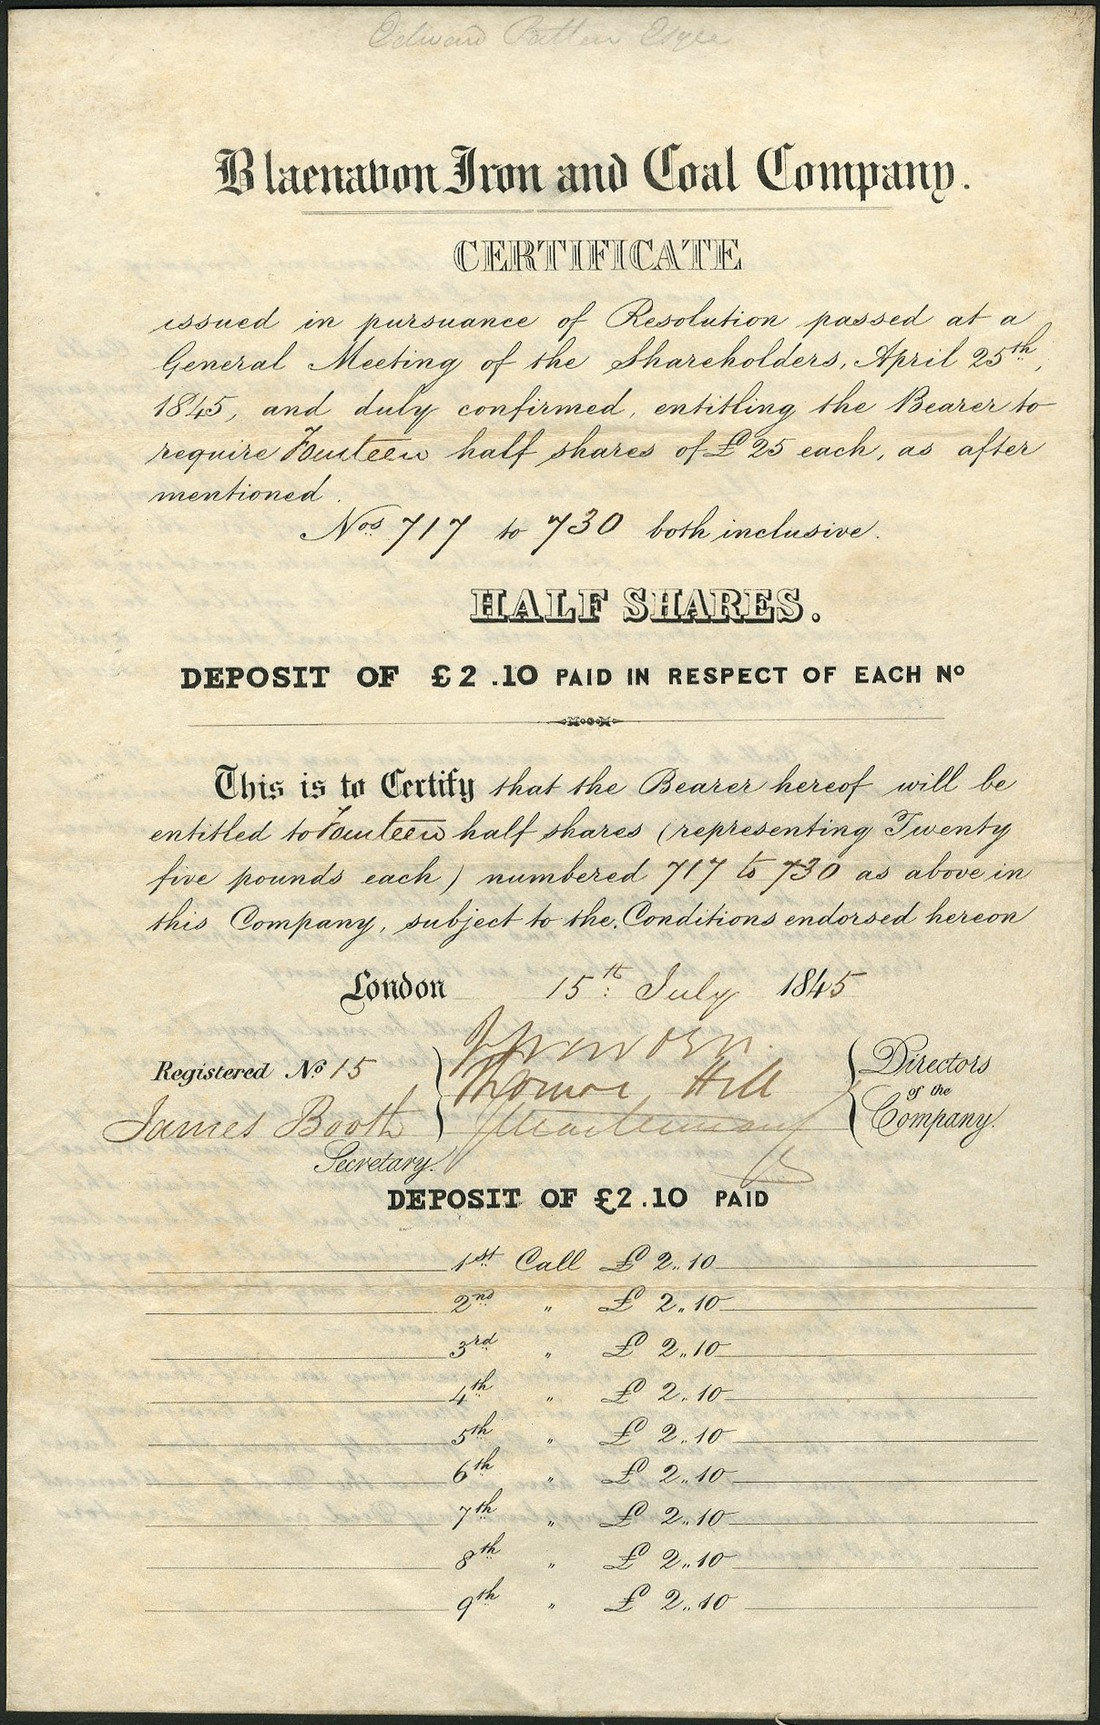 Edward Esqre
Blaenavon Iron and Coal Company.
CERTIFICATE
issued in pursuance of Resolution passed at a
General Meeting of the Shareholders, April 25th,
1845, and duly confirmed, entitling the Bearer to
require Fourteen half shares of £25 each, as after
mentioned.
Nos 717 to 730 both inclusive.
HALF SHARES.
DEPOSIT OF £2.10 PAID IN RESPECT OF EACH No
This is to Certify that the Bearer hereof will be
entitled to Fourteen half shares (representing Twenty
five pounds each) numbered 717 to 730 as above in
this Company, subject to the Conditions endorsed hereon
London 15th July 1845
Registered No 15
Thomas Hill
James Booth
Secretary.
Directors
of the
Company.
DEPOSIT OF £2.10 PAID
1st Call £ 2..10
2nd " £ 2..10
3rd " £ 2..10
4th " £ 2..10
5th " £ 2..10
6th " £ 2..10
7th " £ 2..10
8th " £ 2..10
9th " £ 2..10